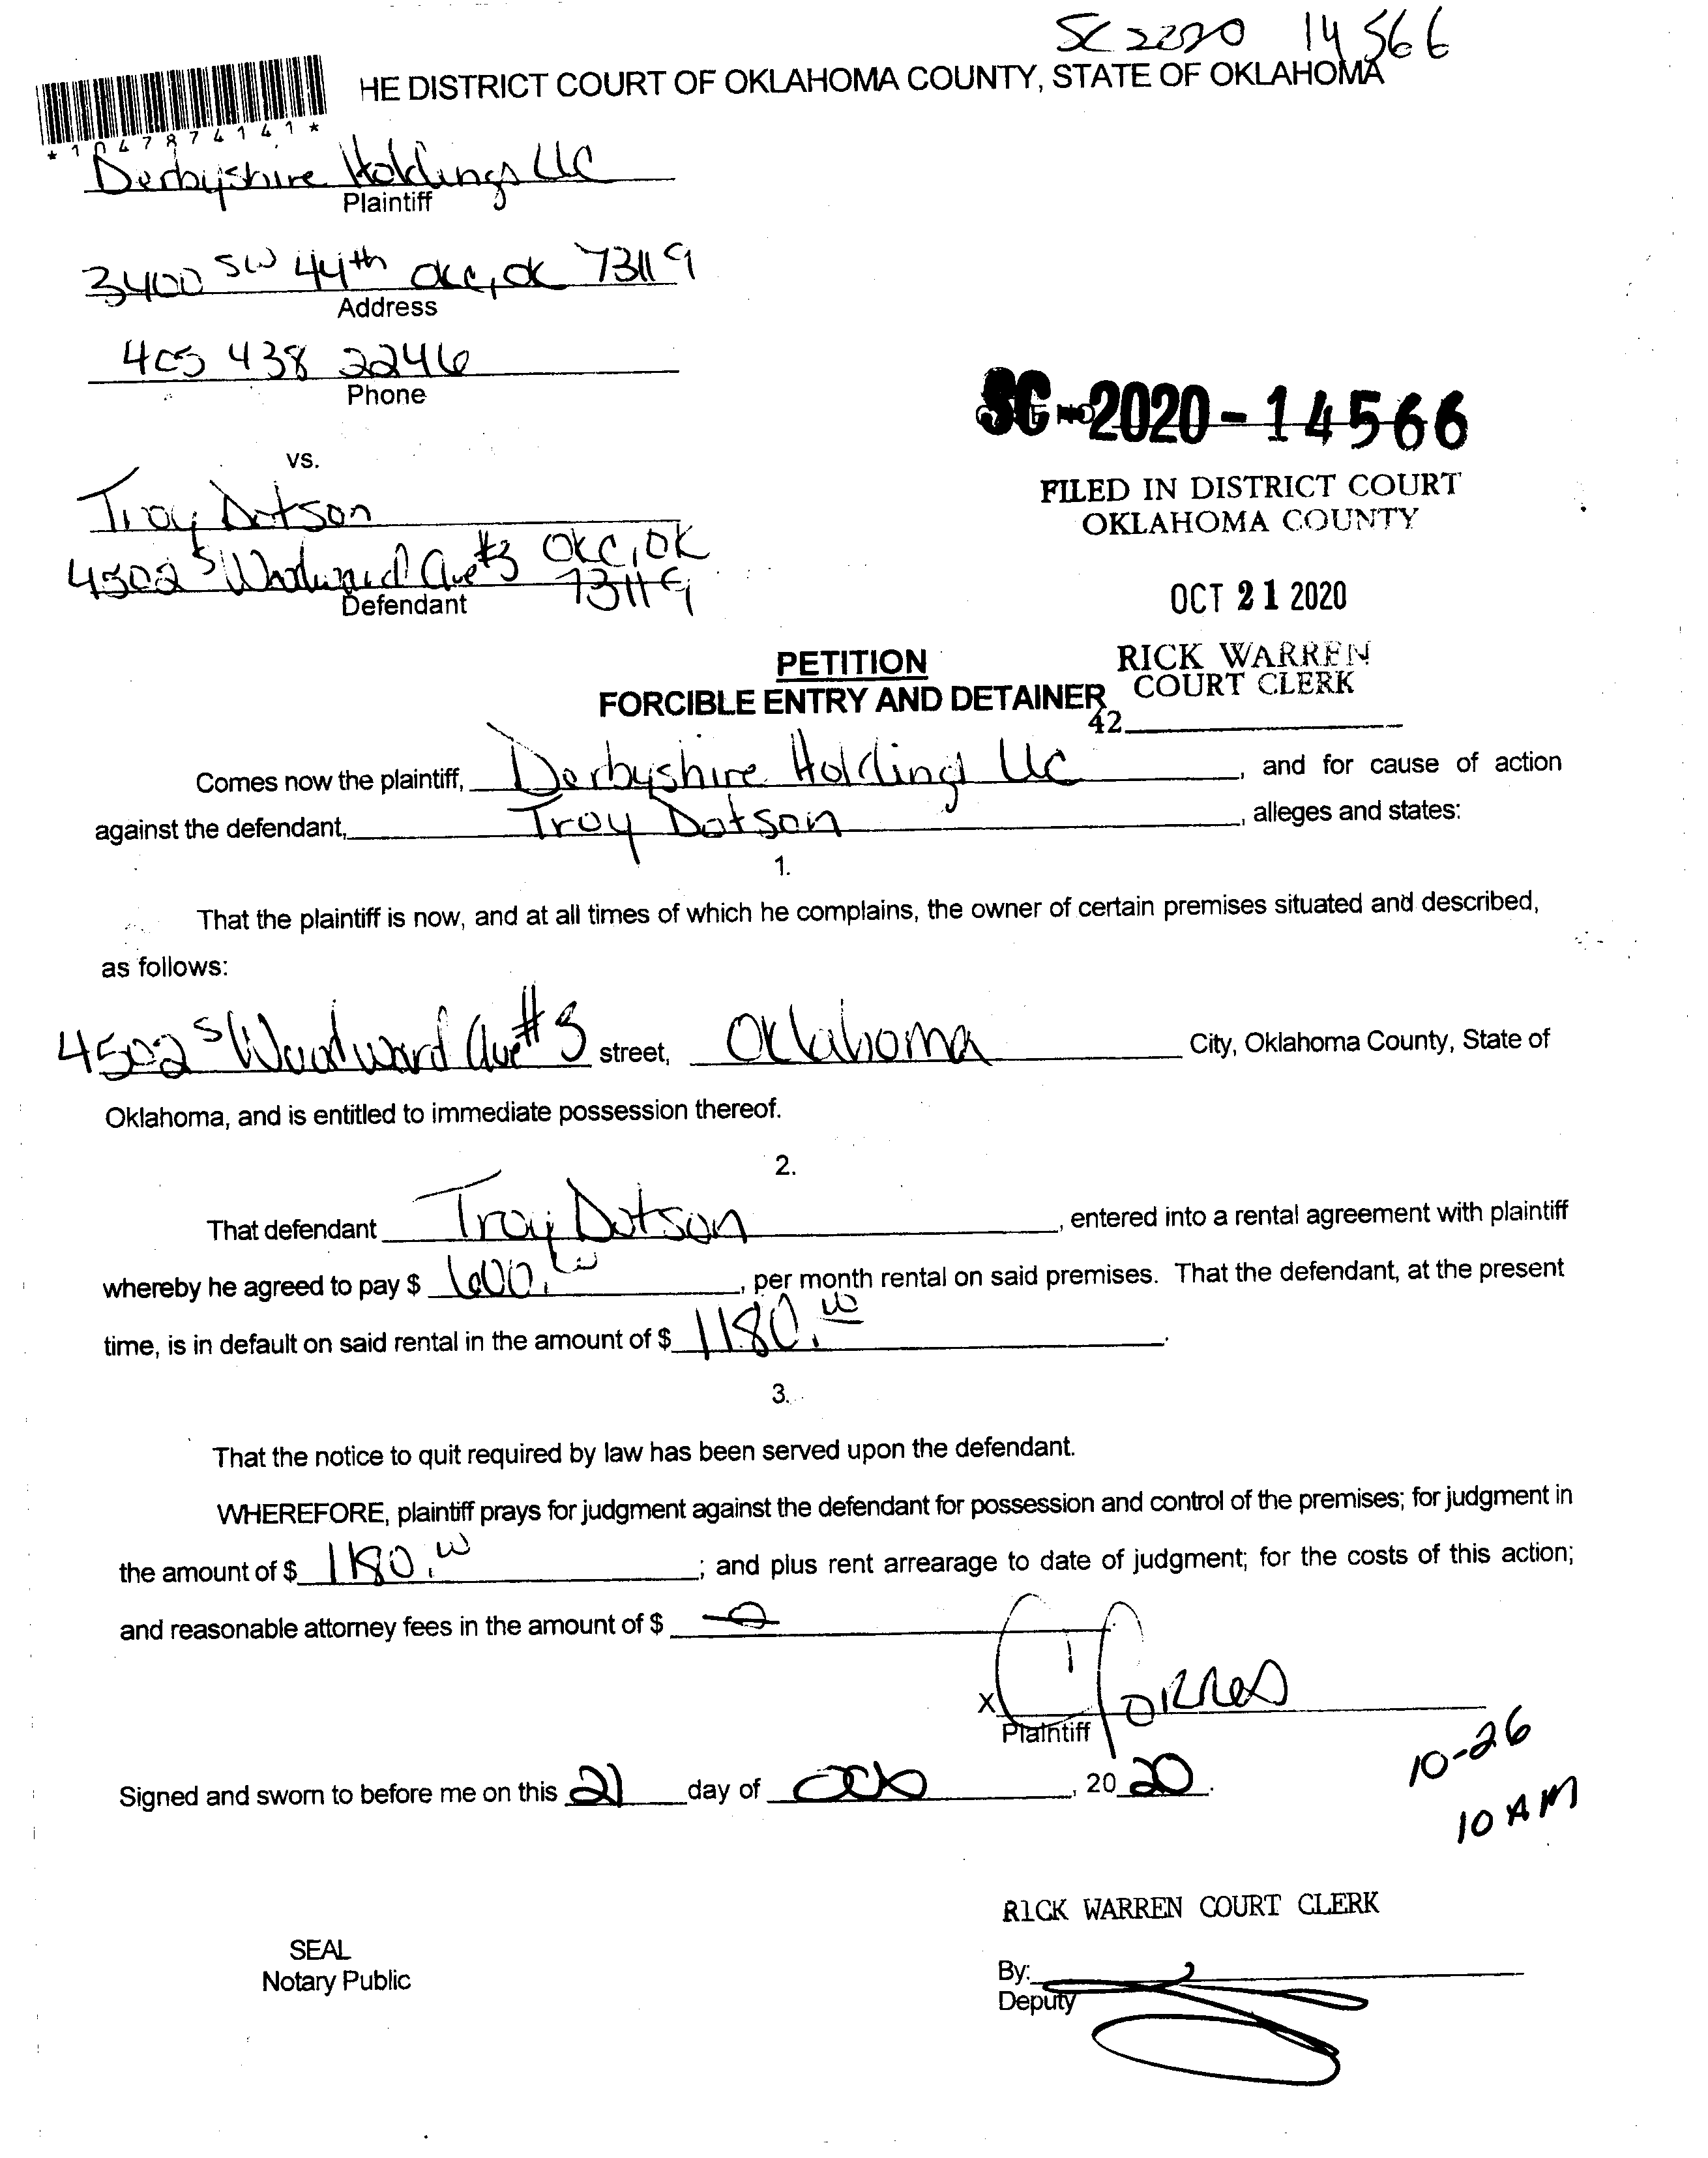 SC 2020 14566
HE DISTRICT COURT OF OKLAHOMA COUNTY, STATE OF OKLAHOMA
*1047874141*
Derbyshire Holdings LLC
Plaintiff
3400 SW 44th OKC, OK 73119
Address
405 438 2246
Phone
SC-2020-14566
vs.
FILED IN DISTRICT COURT
OKLAHOMA COUNTY
Troy Dotson
4502 S Woodward Ave #3 OKC, OK
73119
Defendant
OCT 21 2020
PETITION
RICK WARREN
COURT CLERK
FORCIBLE ENTRY AND DETAINER
42
Comes now the plaintiff, Derbyshire Holdings LLC, and for cause of action
against the defendant, Troy Dotson, alleges and states:
1.
That the plaintiff is now, and at all times of which he complains, the owner of certain premises situated and described,
as follows:
4502 S Woodward Ave #3 street, Oklahoma City, Oklahoma County, State of
Oklahoma, and is entitled to immediate possession thereof.
2.
That defendant Troy Dotson, entered into a rental agreement with plaintiff
whereby he agreed to pay $ 600.00, per month rental on said premises. That the defendant, at the present
time, is in default on said rental in the amount of $ 1180.00.
3.
That the notice to quit required by law has been served upon the defendant.
WHEREFORE, plaintiff prays for judgment against the defendant for possession and control of the premises; for judgment in
the amount of $ 1180.00; and plus rent arrearage to date of judgment; for the costs of this action;
and reasonable attorney fees in the amount of $ 0
X Torres
Plaintiff
10-26
10 AM
Signed and sworn to before me on this 21 day of Octo, 20 20.
RICK WARREN COURT CLERK
SEAL
Notary Public
By:
Deputy